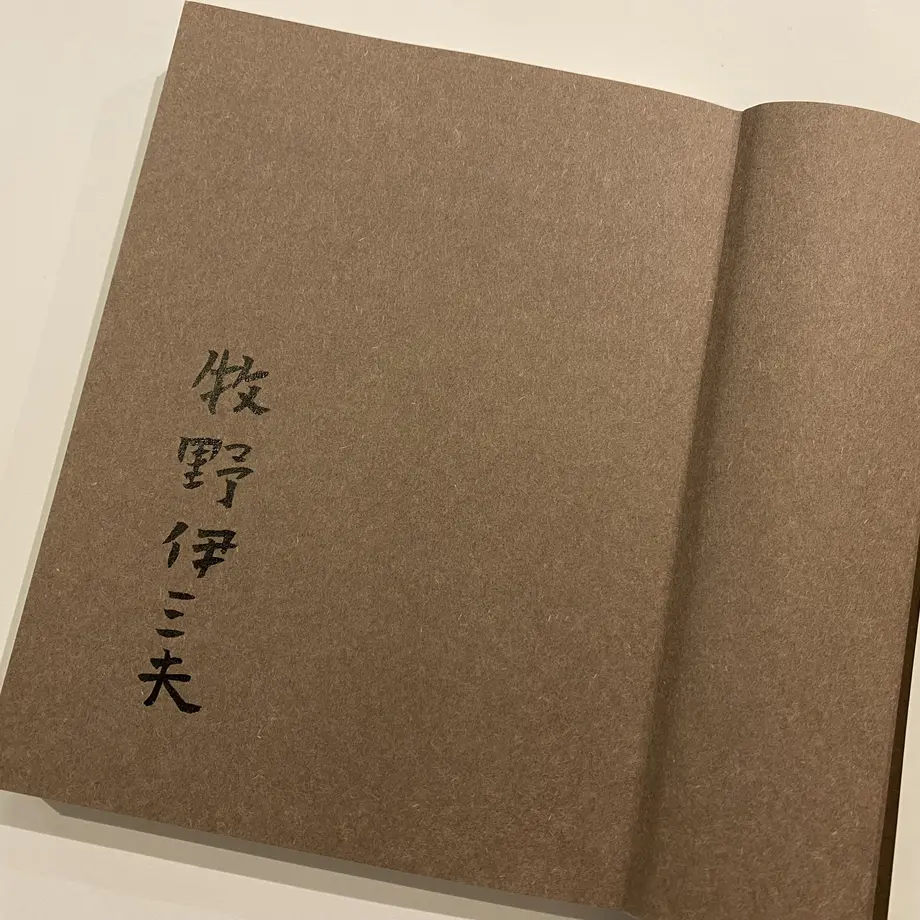 牧野伊三夫